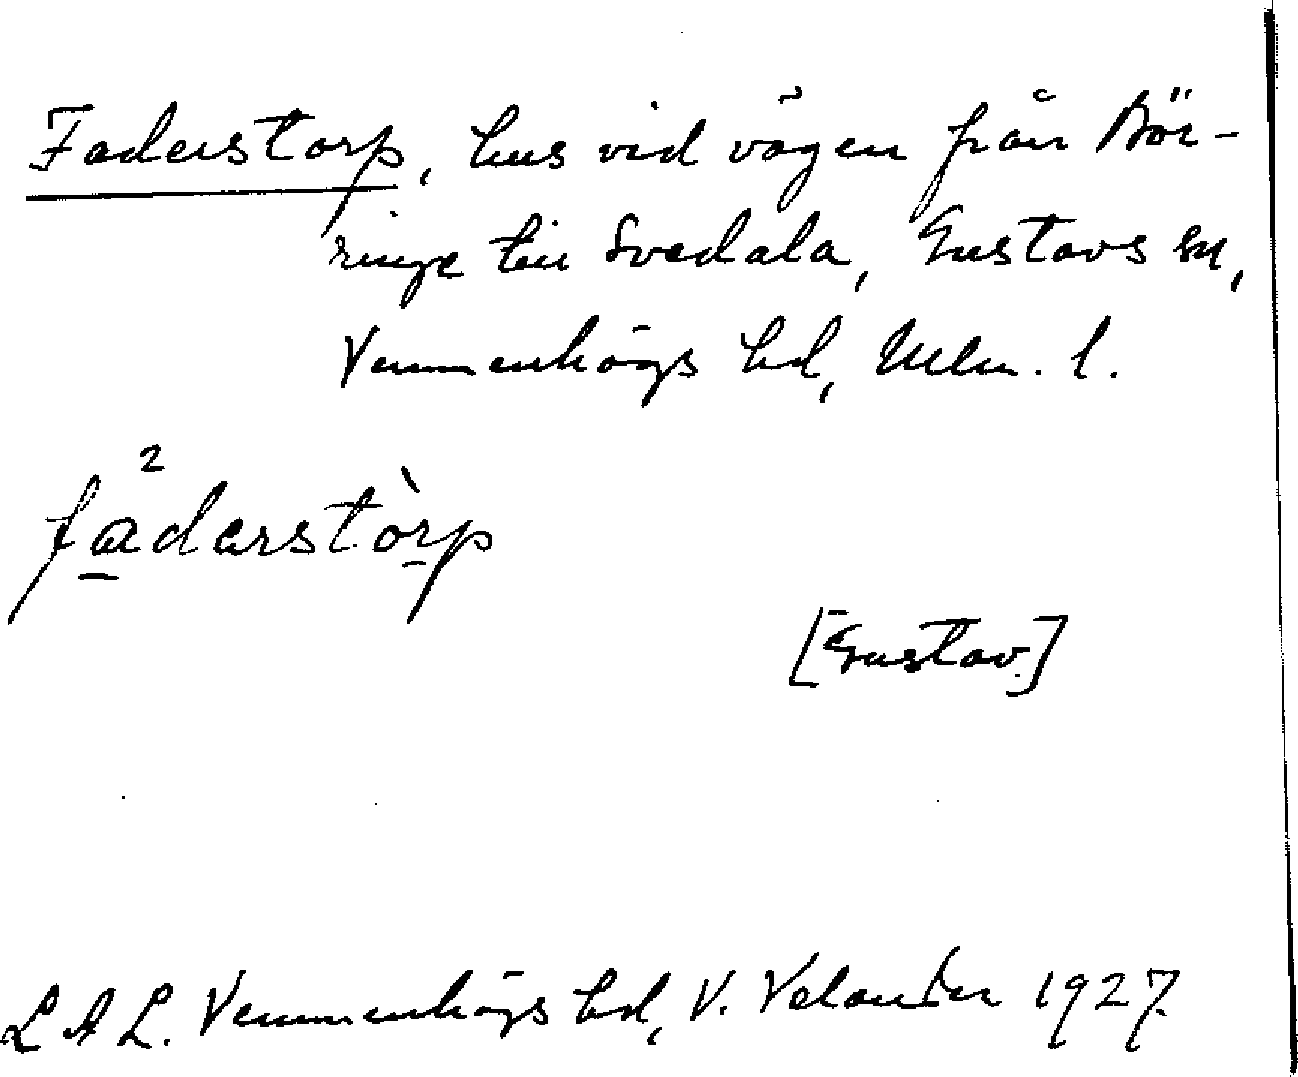 Faderstorp, hus vid vägen från Bör-
ringe till Svedala, Gustavs sn,
Vemmenhögs hd, Mlm. l.
2
fadarstòrp
[Gustav.]
L A L. Vemmenhögs hd, V. Velander 1927.